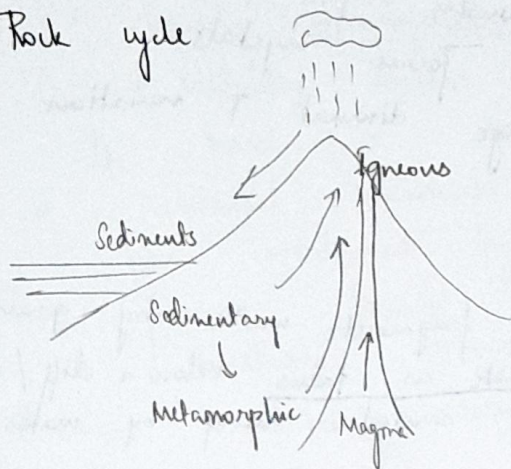 Rock cycle
Igneous
Sediments
Sedimentary
Metamorphic
Magma